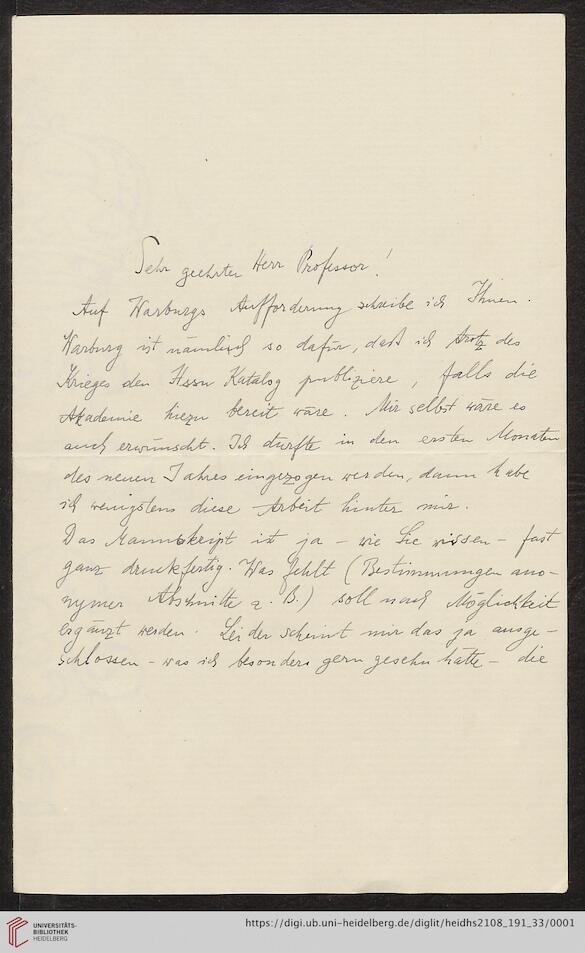 Sehr geehrter Herr Professor!
Auf Warburgs Aufforderung schreibe ich Ihnen.
Warburg ist nämlich so dafür, daß ich trotz des
Krieges den Hssn Katalog publiziere, falls die
Akademie hiezu bereit wäre. Mir selbst wäre es
auch erwünscht. Ich dürfte in den ersten Monaten
des neuen Jahres eingezogen werden, dann habe
ich wenigstens diese Arbeit hinter mir.
Das Manuskript ist ja – wie Sie wissen – fast
ganz druckfertig. Was fehlt (Bestimmungen ano-
nymer Abschnitte z. B.) soll nach Möglichkeit
ergänzt werden. Leider scheint mir das ja ausge-
schlossen – was ich besonders gern gesehn hätte – die
UNIVERSITÄTS-
BIBLIOTHEK
HEIDELBERG
https://digi.ub.uni-heidelberg.de/diglit/heidhs2108_191_33/0001